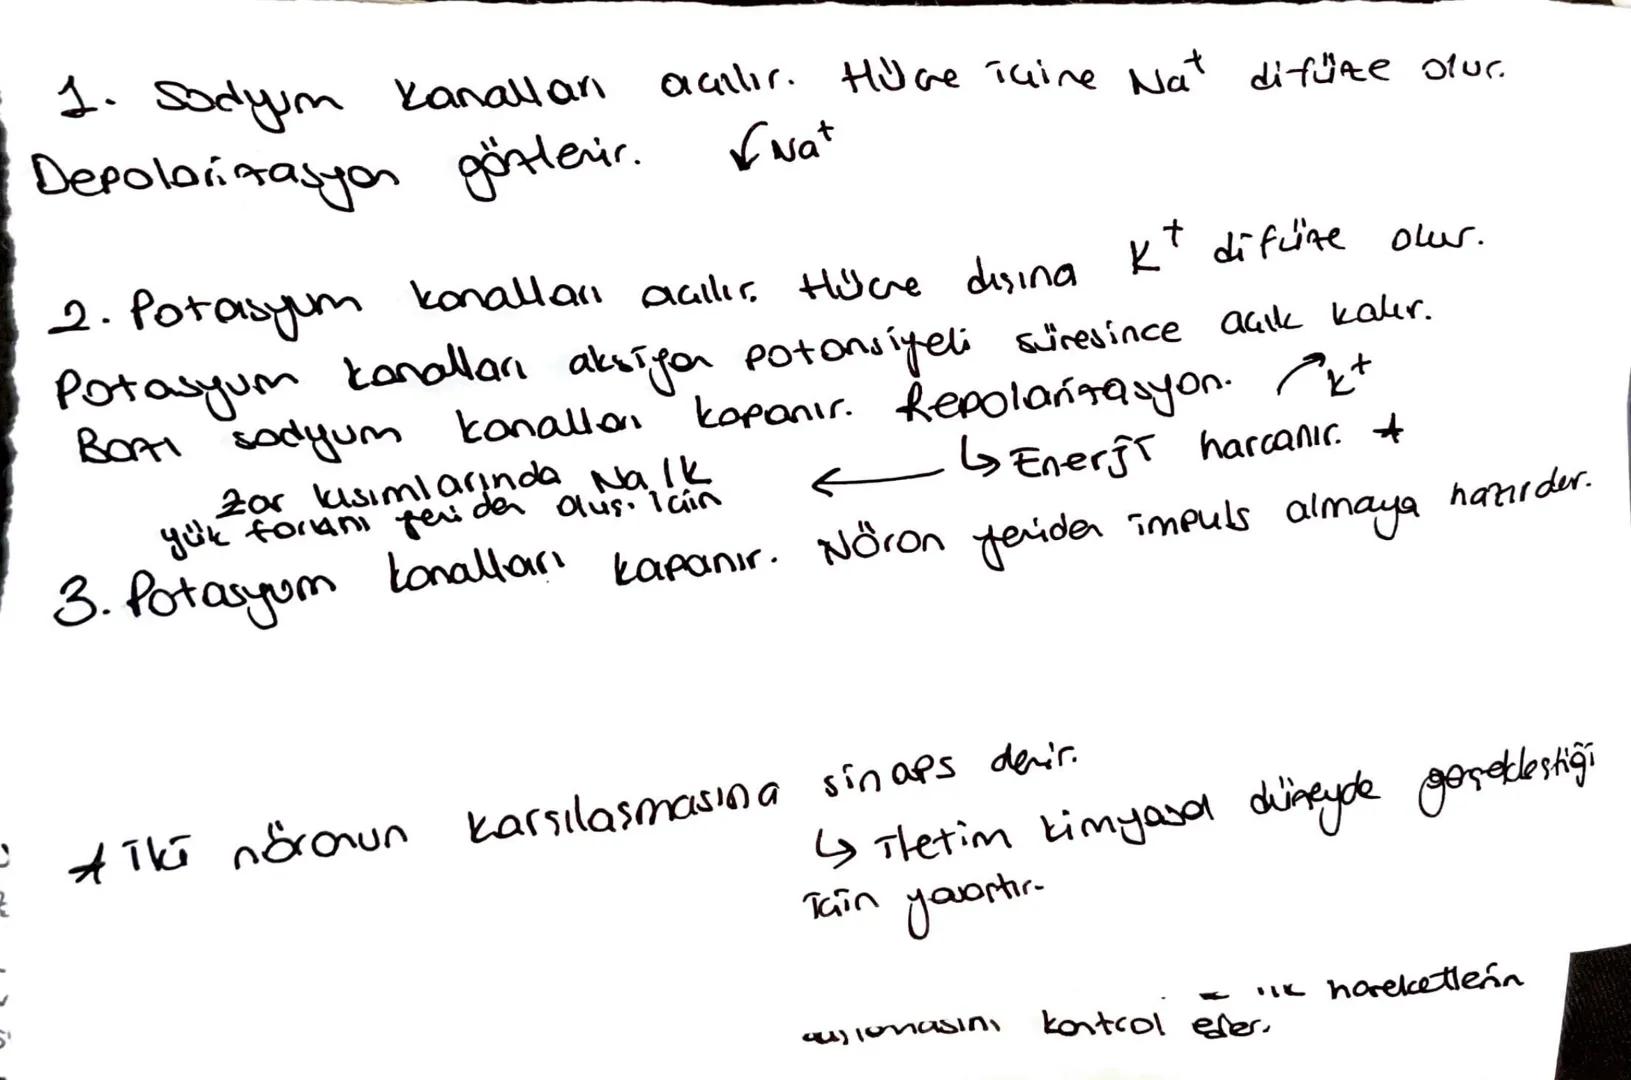 1. Sodyum kanalları açılır. Hücre içine Na⁺ difüze olur.
Depolarizasyon gözlenir. ↙Na⁺
2. Potasyum kanalları açılır. Hücre dışına K⁺ difüze olur.
Potasyum kanalları aksiyon potansiyeli süresince açık kalır.
Bazı sodyum kanalları kapanır. Repolarizasyon. ↗K⁺
↳ Enerji harcanır. ★
← zar kısımlarında Na/K
yük farkını yeniden oluş. için
3. Potasyum kanalları kapanır. Nöron yeniden impuls almaya hazırdır.
★ İki nöronun karşılaşmasına sinaps denir.
↳ İletim kimyasal düzeyde gerçekleştiği
için yavaştır.
hareketlerin
kontrol eder.